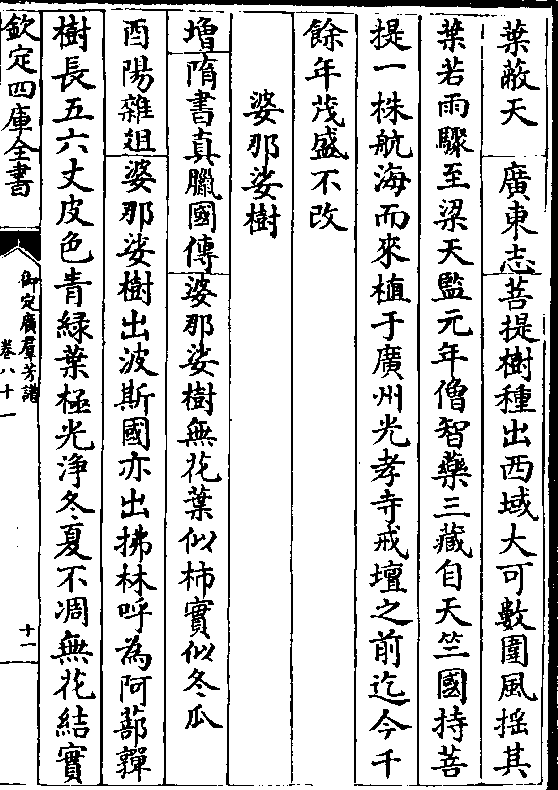 葉蔽天　廣東志菩提樹種出西域大可數圍風揺其
葉若雨驟至梁天監元年僧智藥三藏自天竺國持菩
提一株航海而來植于廣州光孝寺戒壇之前迄今千
餘年茂盛不改
婆那娑樹
増隋書真臘國傳婆那娑樹無花葉似柿實似冬瓜
酉陽雜俎婆那娑樹出波斯國亦出拂林呼為阿蔀嚲
樹長五六丈皮色青緑葉極光淨冬夏不凋無花結實
欽定四庫全書
御定廣羣芳譜
卷八十一
十一